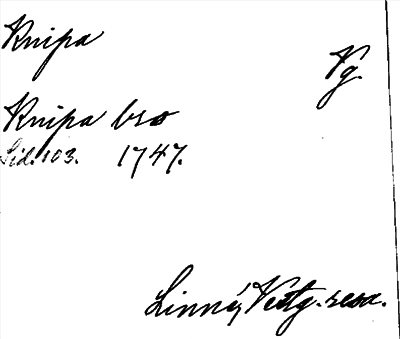 Knipa
Vg.
Knipa bro
Sid. 103. 1747.
Linné, Vestg. resa.